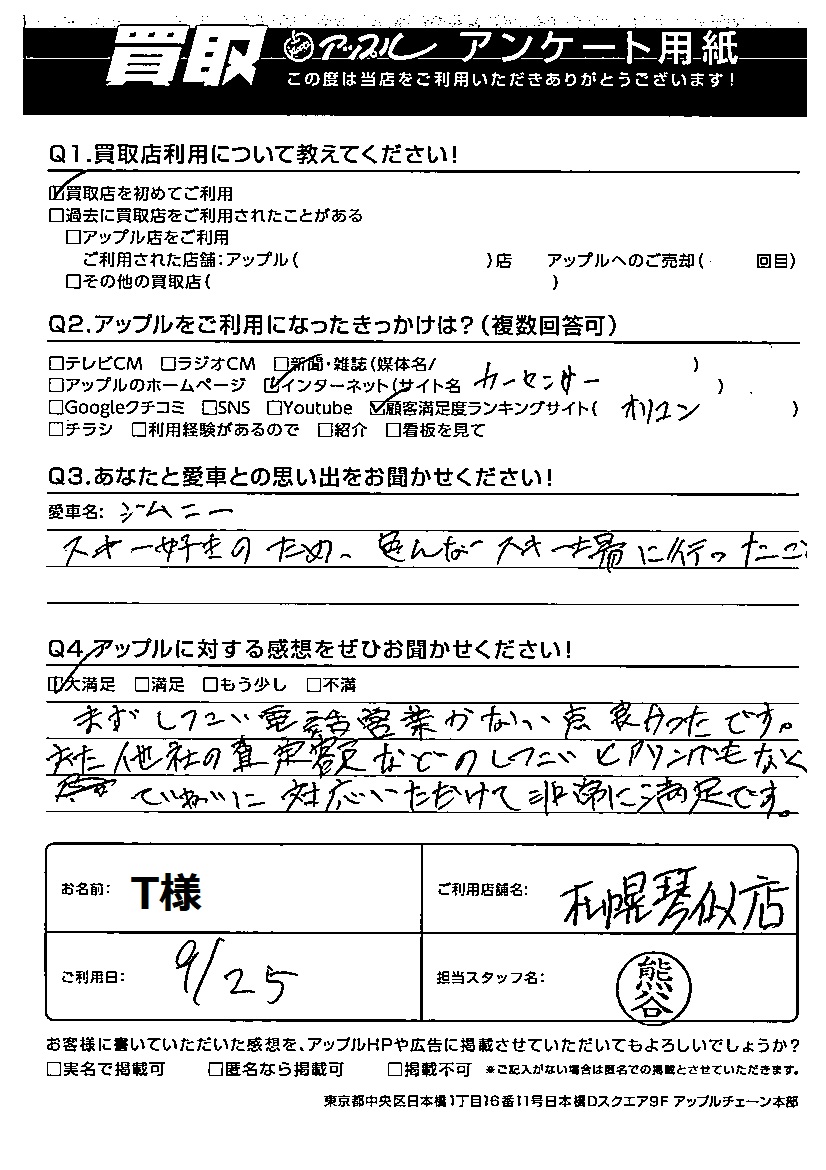 買取 アップル アンケート用紙
この度は当店をご利用いただきありがとうございます!
Q1.買取店利用について教えてください!
☑買取店を初めてご利用
□過去に買取店をご利用されたことがある
□アップル店をご利用
ご利用された店舗:アップル( )店 アップルへのご売却( 回目)
□その他の買取店( )
Q2.アップルをご利用になったきっかけは?(複数回答可)
□テレビCM □ラジオCM □新聞・雑誌(媒体名/ )
□アップルのホームページ ☑インターネット(サイト名 カーセンサー )
□Googleクチコミ □SNS □Youtube ☑顧客満足度ランキングサイト( オリコン )
□チラシ □利用経験があるので □紹介 □看板を見て
Q3.あなたと愛車との思い出をお聞かせください!
愛車名: ジムニー
スキー好きのため、色んなスキー場に行ったこと
Q4.アップルに対する感想をぜひお聞かせください!
☑大満足 □満足 □もう少し □不満
まずしつこい電話営業がない点良かったです。
また他社の査定額などのしつこいヒアリングもなく
ていねいに対応いただけて非常に満足です。
お名前: T様 ご利用店舗名: 札幌琴似店
ご利用日: 9/25 担当スタッフ名: 熊谷
お客様に書いていただいた感想を、アップルHPや広告に掲載させていただいてもよろしいでしょうか?
□実名で掲載可 □匿名なら掲載可 □掲載不可 ※ご記入がない場合は匿名での掲載とさせていただきます。
東京都中央区日本橋1丁目16番11号日本橋Dスクエア9F アップルチェーン本部